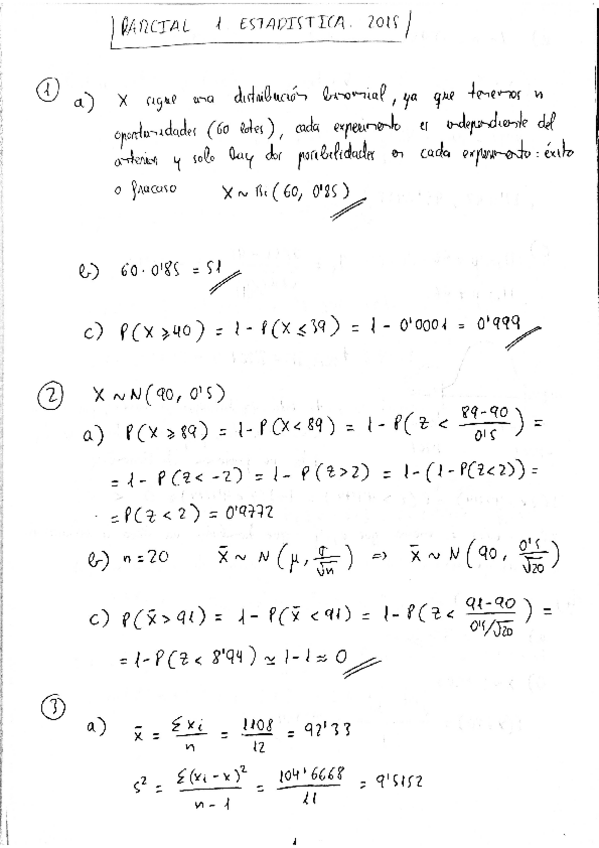 PARCIAL 1 ESTADISTICA. 2015
① a) X sigue una distribución binomial, ya que tenemos n
oportunidades (60 lotes), cada experimento es independiente del
anterior y solo hay dos posibilidades en cada experimento: éxito
o fracaso X ~ Bi (60, 0'85)
b) 60 · 0'85 = 51
c) P(X ≥ 40) = 1 - P(X ≤ 39) = 1 - 0'0001 = 0'999
② X ~ N(90, 0'5)
a) P(X ≥ 89) = 1 - P(X < 89) = 1 - P(Z < (89-90)/0'5) =
= 1 - P(Z < -2) = 1 - P(Z > 2) = 1 - (1 - P(Z < 2)) =
= P(Z < 2) = 0'9772
b) n = 20 x̄ ~ N(μ, σ/√n) ⇒ x̄ ~ N(90, 0'5/√20)
c) P(x̄ > 91) = 1 - P(x̄ < 91) = 1 - P(Z < (91-90)/(0'5/√20)) =
= 1 - P(Z < 8'94) ≃ 1 - 1 ≈ 0
③ a) x̄ = Σxi/n = 1108/12 = 92'33
s² = Σ(xi - x)²/(n - 1) = 104'6668/11 = 9'5152
1